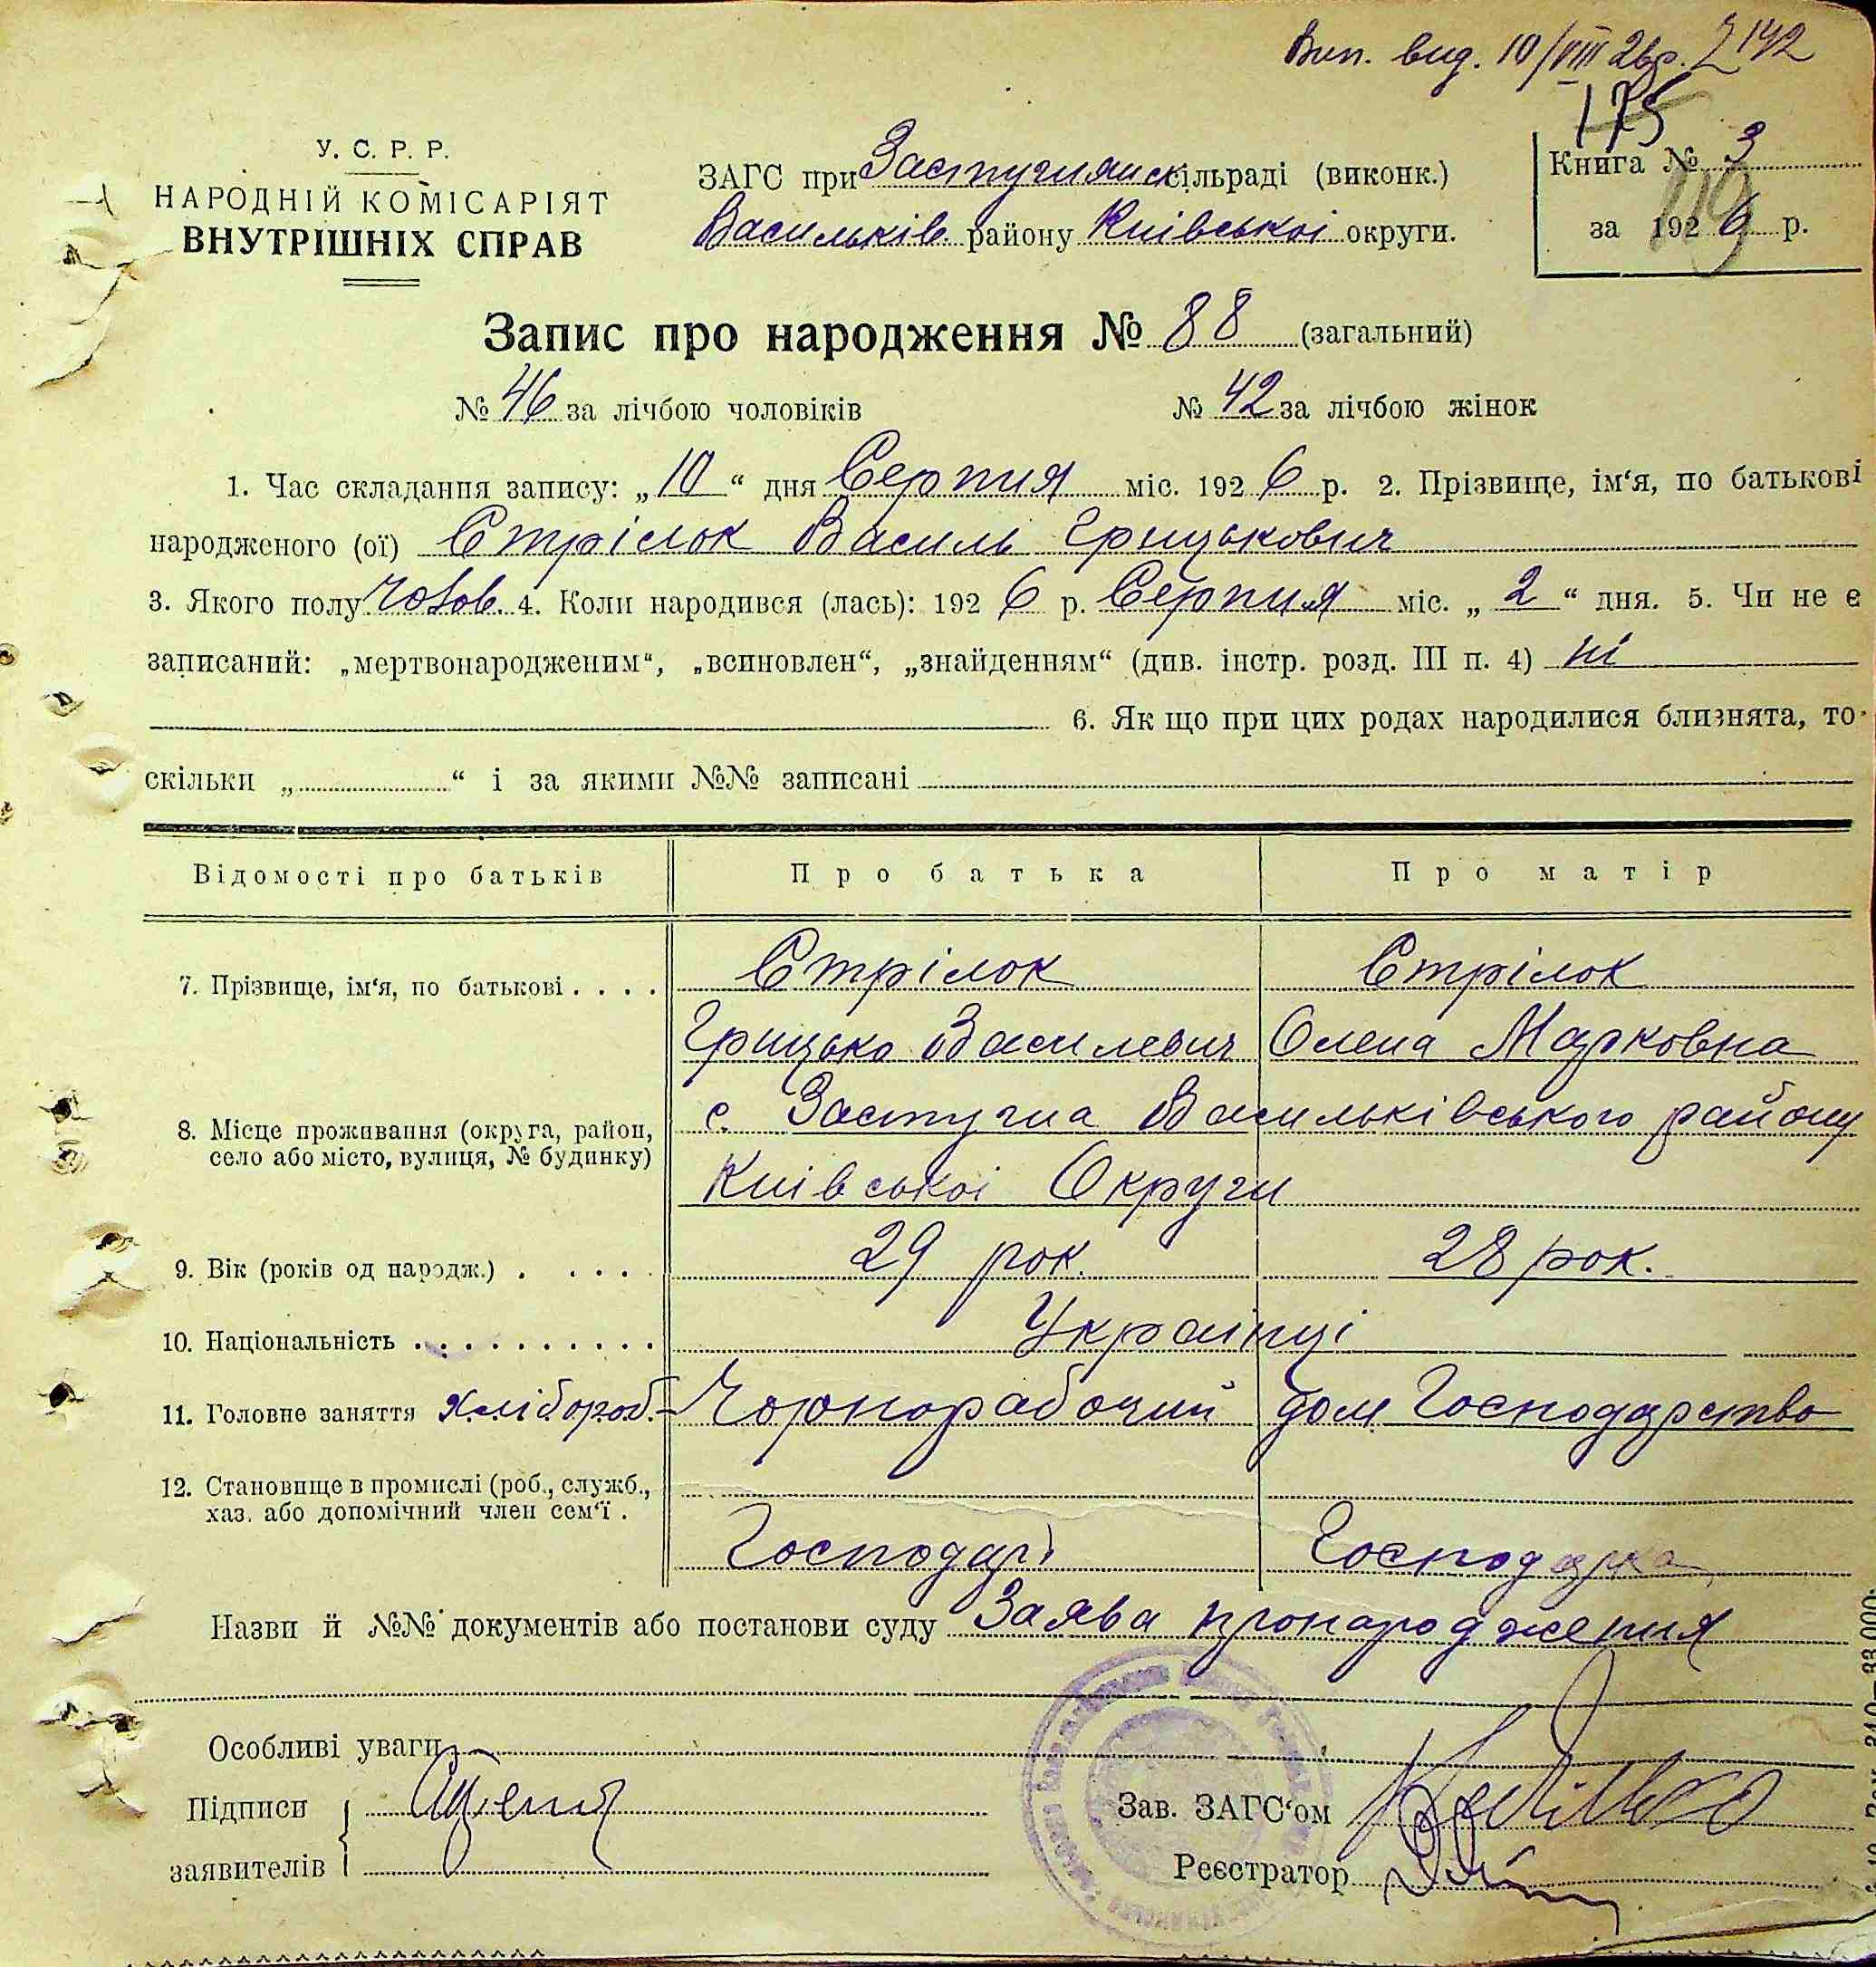 Вип. вид. 10/VIII 26р. 2142
175
У. С. Р. Р.
НАРОДНІЙ КОМІСАРІЯТ
ВНУТРІШНІХ СПРАВ
ЗАГС при Застугнянск сільраді (виконк.)
Васильків. району Київської округи.
Книга № 3
119
за 1926 р.
Запис про народження № 88 (загальний)
№ 46 за лічбою чоловіків № 42 за лічбою жінок
1. Час складання запису: „10“ дня Серпня міс. 1926 р. 2. Прізвище, ім‘я, по батькові
народженого (ої) Стрілок Василь Грицькович
3. Якого полу Чолов. 4. Коли народився (лась): 1926 р. Серпня міс. „2“ дня. 5. Чи не є
записаний: „мертвонародженим“, „всиновлен“, „знайденням“ (див. інстр. розд. III п. 4) ні
6. Як що при цих родах народилися близнята, то
скільки „ “ і за якими №№ записані
Відомості про батьків Про батька Про матір
7. Прізвище, ім‘я, по батькові . . . . Стрілок Стрілок
Грицько Василевич Олена Марковна
8. Місце проживання (округа, район, село або місто, вулиця, № будинку) с. Застугна Васильківського району
Київської Округи
9. Вік (років од народж.) . . . . . 29 рок. 28 рок.
10. Національність . . . . . . . . . . Українці
11. Головне заняття Хлібороб.- Чорнорабочий дом Господарство
12. Становище в промислі (роб., служб.,
хаз. або допомічний член сем‘ї .
Господарь Господарка
Назви й №№ документів або постанови суду Заява пронародження
Особливі уваги
Підписи
заявителів
Зав. ЗАГС‘ом
Реєстратор